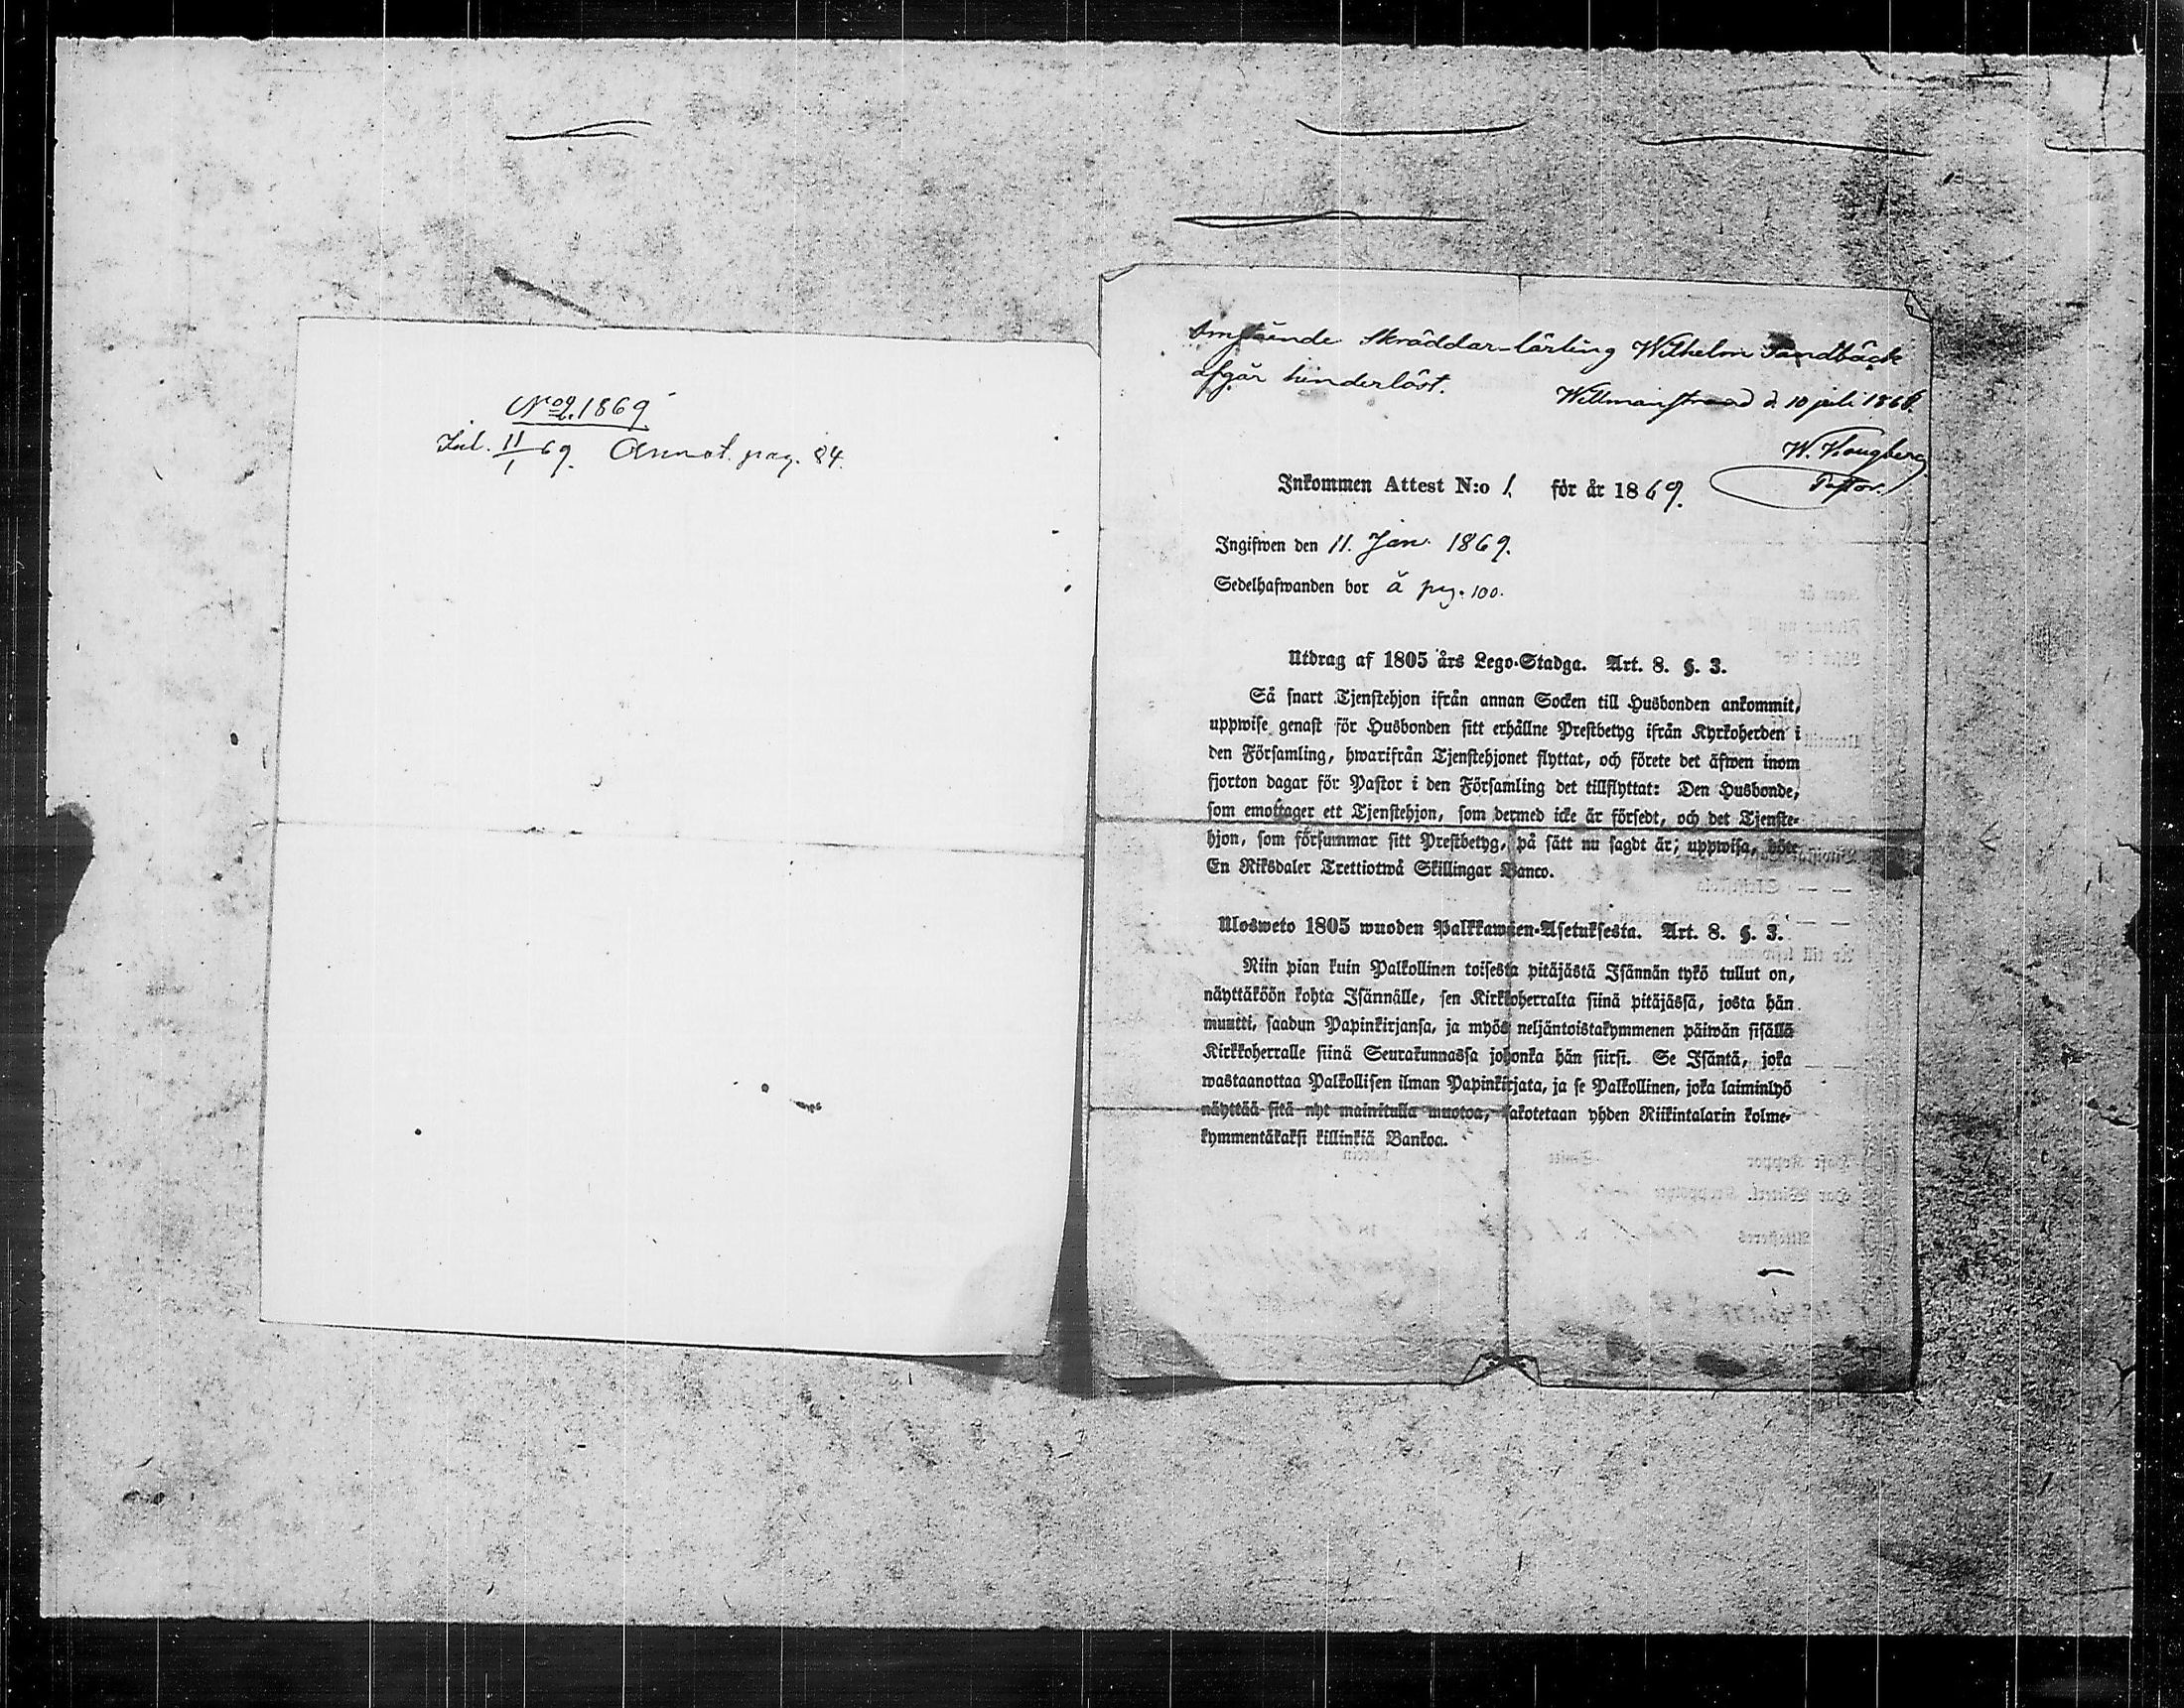 No 2. 1869
Inl. 11/1 69. Annot. pag. 84.
Omstående Skräddar-lärling Wilhelm Sandbäck
afgår hinderlöst. Willmanstrand d. 10 juli 1868.
W.
Pastor.
Inkommen Attest N:o 1. för år 1869.
Ingifwen den 11. Jan. 1869.
Sedelhafwanden bor å pag. 100.
Utdrag af 1805 års Lego-Stadga. Art. 8. §. 3.
Så snart Tjenstehjon ifrån annan Socken till Husbonden ankommit,
uppwise genast för Husbonden sitt erhållne Prestbetyg ifrån Kyrkoherden i
den Församling, hwarifrån Tjenstehjonet flyttat, och förete det äfwen inom
fjorton dagar för Pastor i den Församling det tillflyttat: Den Husbonde,
som emottager ett Tjenstehjon, som dermed icke är försedt, och det Tjenste-
hjon, som försummar sitt Prestbetyg, på sätt nu sagdt är; uppwisa, böte
En Riksdaler Trettiotwå Skillingar Banco.
Ulosweto 1805 wuoden Palkkawäen-Asetuksesta. Art. 8. §. 3.
Niin pian kuin Palkollinen toisesta pitäjästä Isännän tykö tullut on,
näyttäköön kohta Isännälle, sen Kirkkoherralta siinä pitäjässä, josta hän
muutti, saadun Papinkirjansa, ja myös neljäntoistakymmenen päiwän sisällä
Kirkkoherralle siinä Seurakunnassa johonka hän siirsi. Se Isäntä, joka
wastaanottaa Palkollisen ilman Papinkirjata, ja se Palkollinen, joka laiminlyö
näyttää sitä nyt mainitulla muotoa, sakotetaan yhden Riikintalarin kolme-
kymmentäkaksi killinkiä Bankoa.